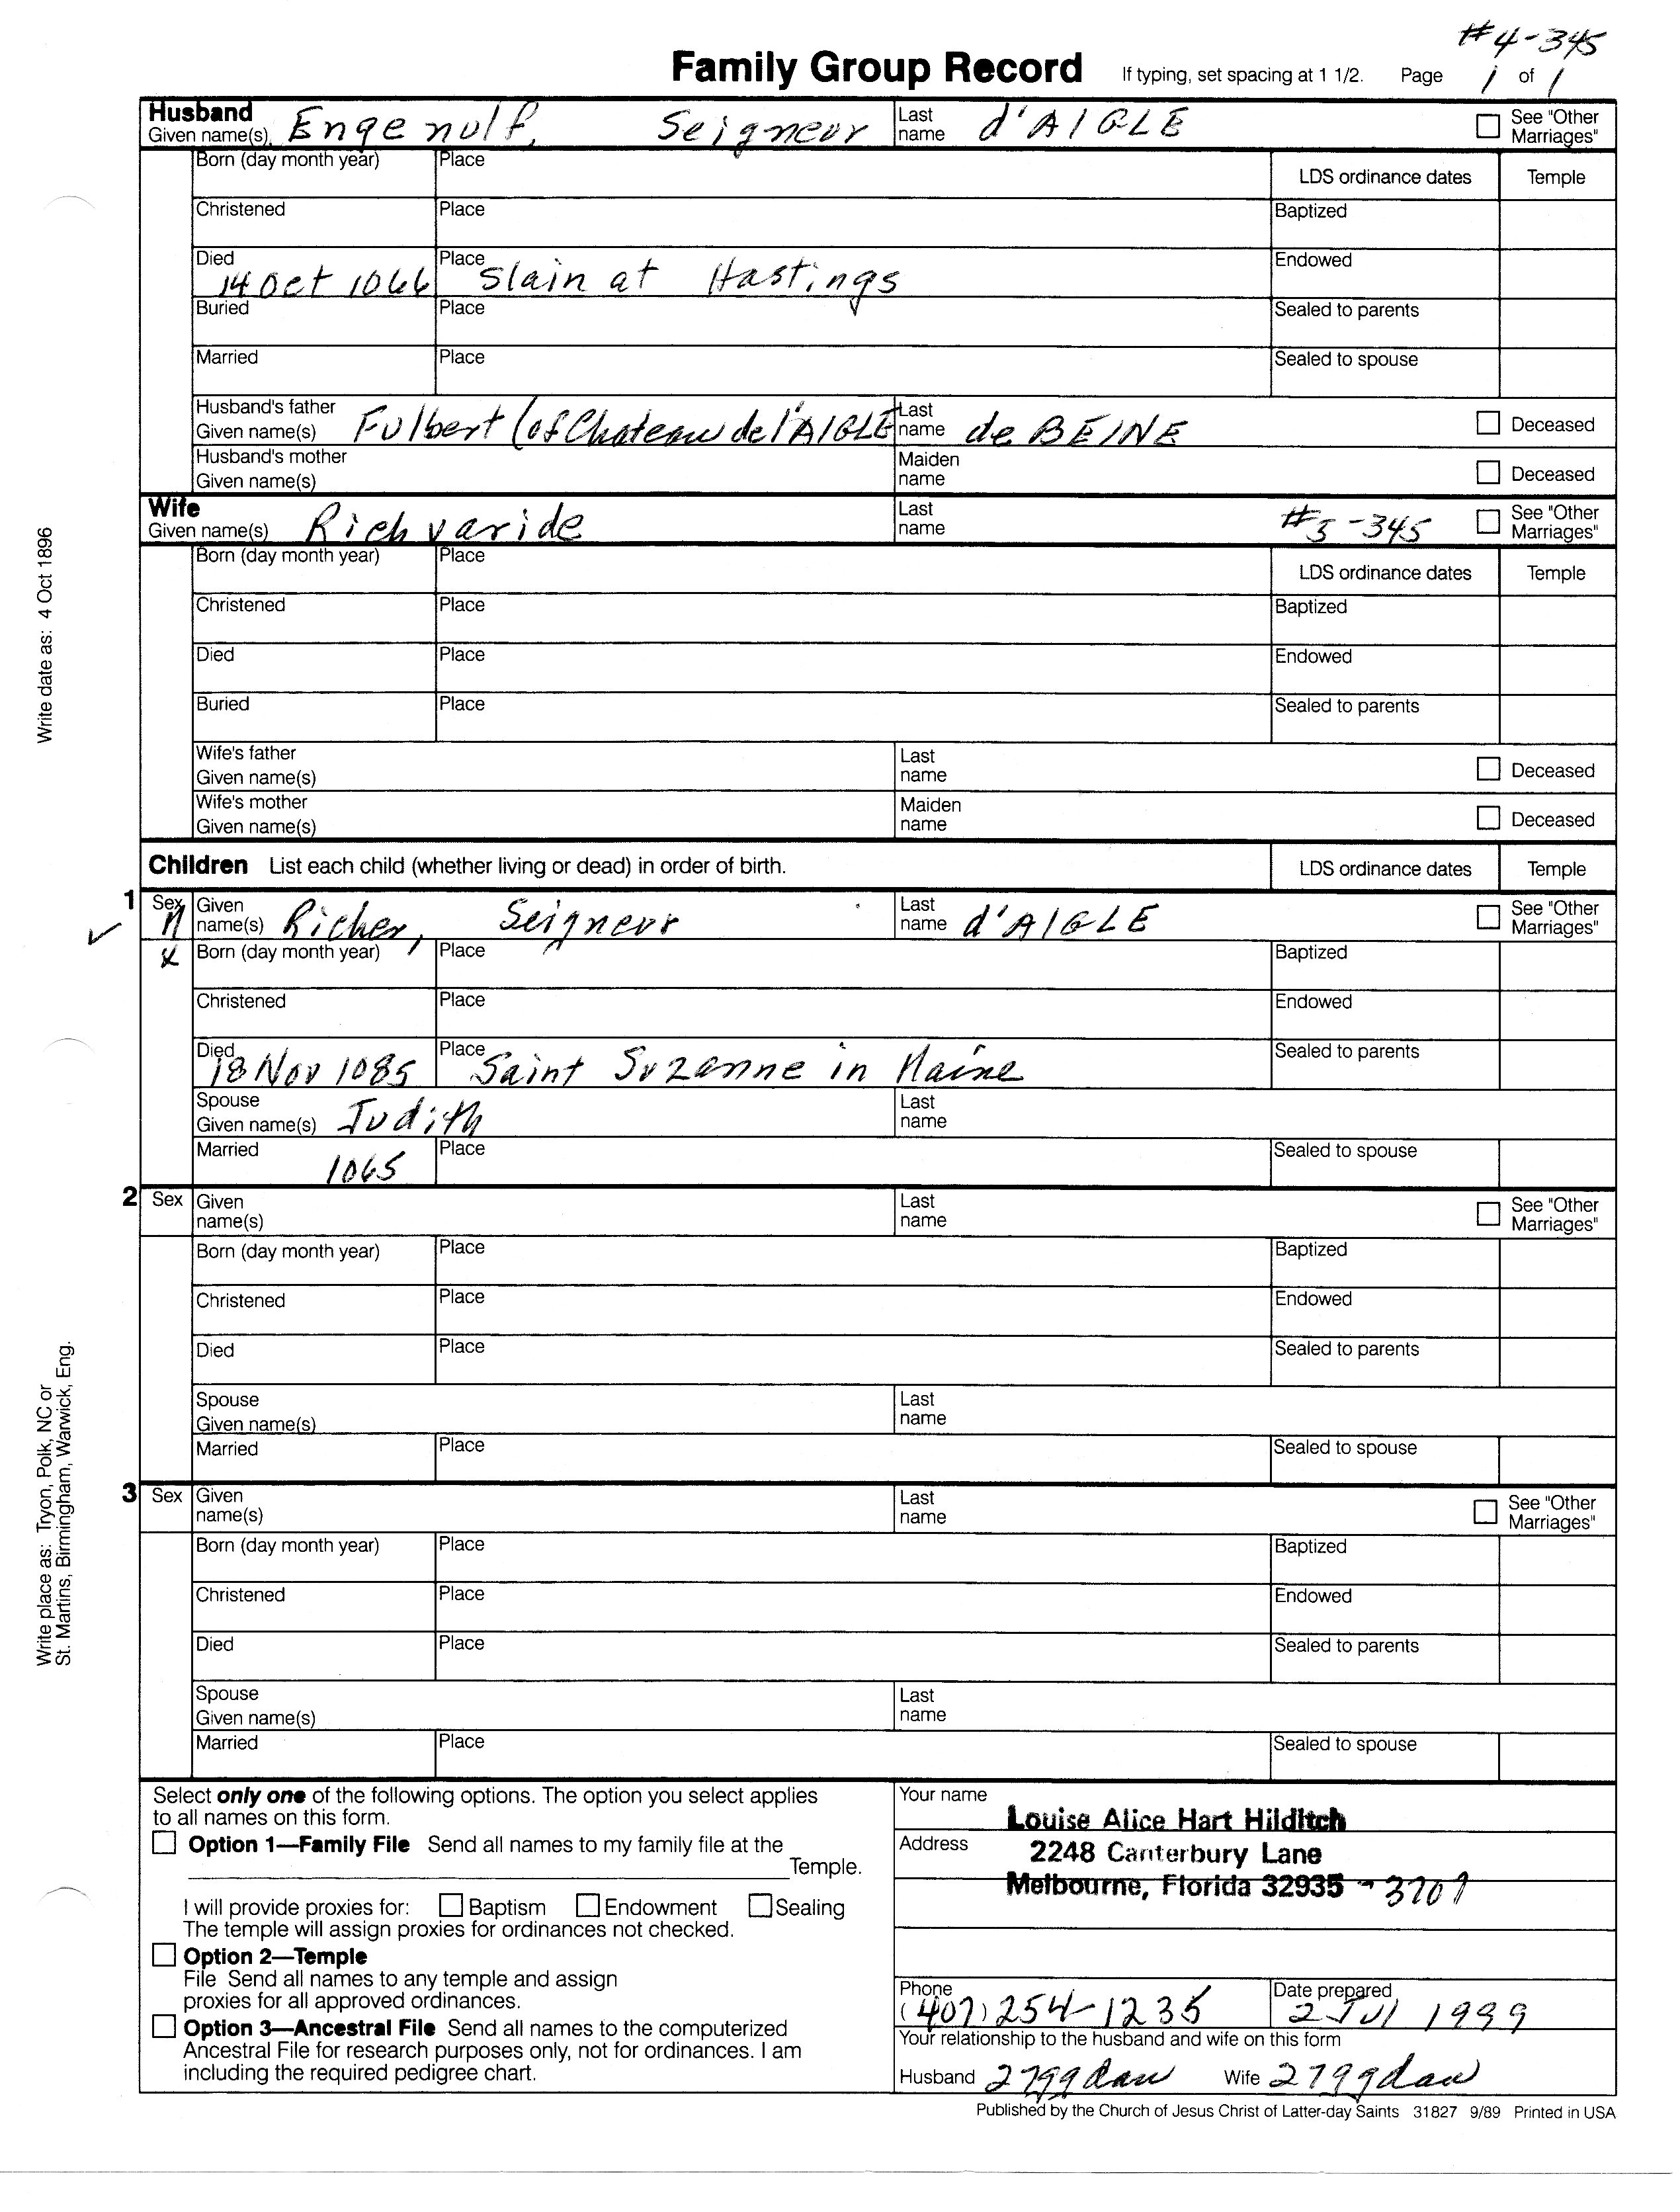 #4-345
Family Group Record If typing, set spacing at 1 1/2. Page 1 of 1
Husband Given name(s) Engenulf, Seigneur Last name d'AIGLE See "Other Marriages"
Born (day month year) Place LDS ordinance dates Temple
Christened Place Baptized
Died 14 Oct 1066 Place Slain at Hastings Endowed
Buried Place Sealed to parents
Married Place Sealed to spouse
Husband's father Given name(s) Fulbert (of Chateau de l'AIGLE Last name de BEINE Deceased
Husband's mother Given name(s) Maiden name Deceased
Wife Given name(s) Richvaride Last name #3-345 See "Other Marriages"
Born (day month year) Place LDS ordinance dates Temple
Christened Place Baptized
Died Place Endowed
Buried Place Sealed to parents
Wife's father Given name(s) Last name Deceased
Wife's mother Given name(s) Maiden name Deceased
Children List each child (whether living or dead) in order of birth. LDS ordinance dates Temple
1 Sex M Given name(s) Richer, Seigneur Last name d'AIGLE See "Other Marriages"
x Born (day month year) Place Baptized
Christened Place Endowed
Died 18 Nov 1085 Place Saint Suzanne in Maine Sealed to parents
Spouse Given name(s) Judith Last name
Married 1065 Place Sealed to spouse
2 Sex Given name(s) Last name See "Other Marriages"
Born (day month year) Place Baptized
Christened Place Endowed
Died Place Sealed to parents
Spouse Given name(s) Last name
Married Place Sealed to spouse
3 Sex Given name(s) Last name See "Other Marriages"
Born (day month year) Place Baptized
Christened Place Endowed
Died Place Sealed to parents
Spouse Given name(s) Last name
Married Place Sealed to spouse
Write date as: 4 Oct 1896
Write place as: Tryon, Polk, NC or
St. Martins, Birmingham, Warwick, Eng.
Select only one of the following options. The option you select applies
to all names on this form.
Option 1—Family File Send all names to my family file at the
Temple.
I will provide proxies for: Baptism Endowment Sealing
The temple will assign proxies for ordinances not checked.
Option 2—Temple
File Send all names to any temple and assign
proxies for all approved ordinances.
Option 3—Ancestral File Send all names to the computerized
Ancestral File for research purposes only, not for ordinances. I am
including the required pedigree chart.
Your name Louise Alice Hart Hilditch
Address 2248 Canterbury Lane
Melbourne, Florida 32935 - 3709
Phone (407) 254-1235 Date prepared 2 Jul 1999
Your relationship to the husband and wife on this form
Husband 27ggdau Wife 27ggdau
Published by the Church of Jesus Christ of Latter-day Saints 31827 9/89 Printed in USA